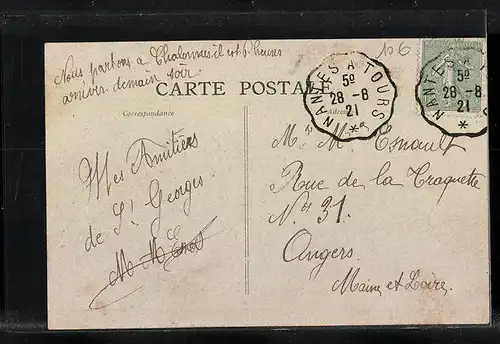 Nous partons à Chalonnes il est 6 heures
arriver demain soir
106
CARTE POSTALE
Correspondance
Adresse
NANTES A TOURS
5º
28 - 8
21
*
NANTES A
5º
28 - 8
21
*
Mes Amitiés
de St Georges.
M M
Mr M Esnault
Rue de la Traquette
Nos 31.
Angers
Maine et Loire.